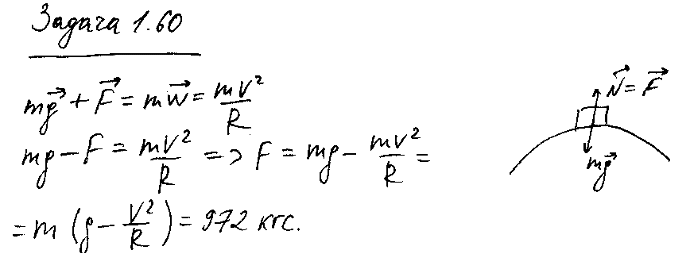 Задача 1.60
mg⃗ + F⃗ = mw⃗ = mv²/R
mg - F = mv²/R => F = mg - mv²/R =
= m (g - v²/R) = 972 кгс.
N⃗ = F⃗
mg⃗